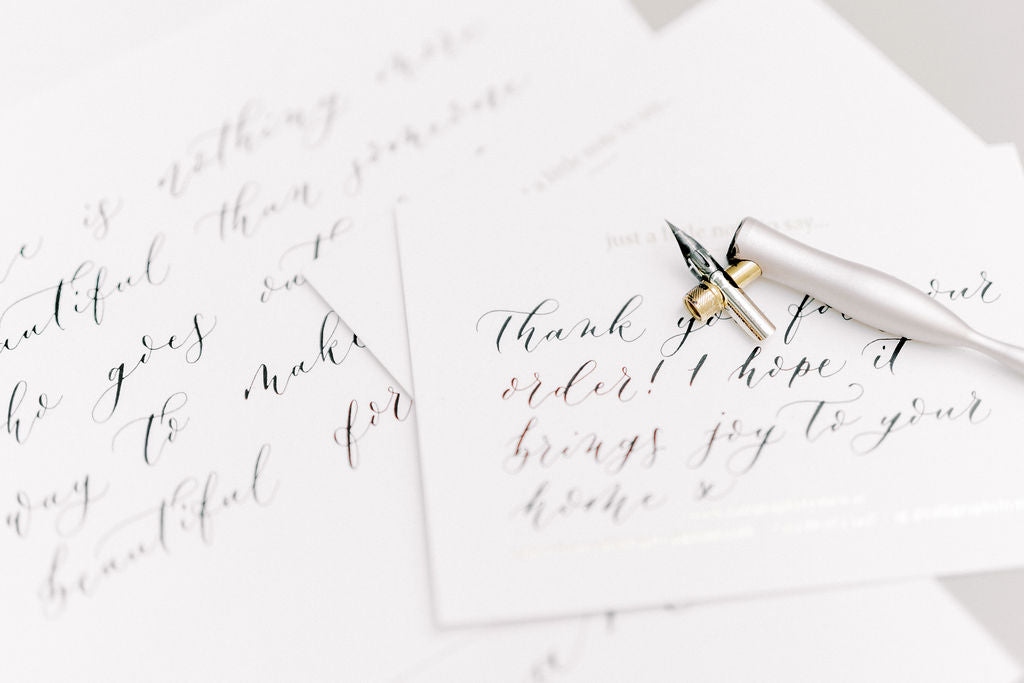 is nothing more
beautiful than someone
who goes out
way to make
beautiful for
just a little note to say...
Thank you for your
order! I hope it
brings joy to your
home x